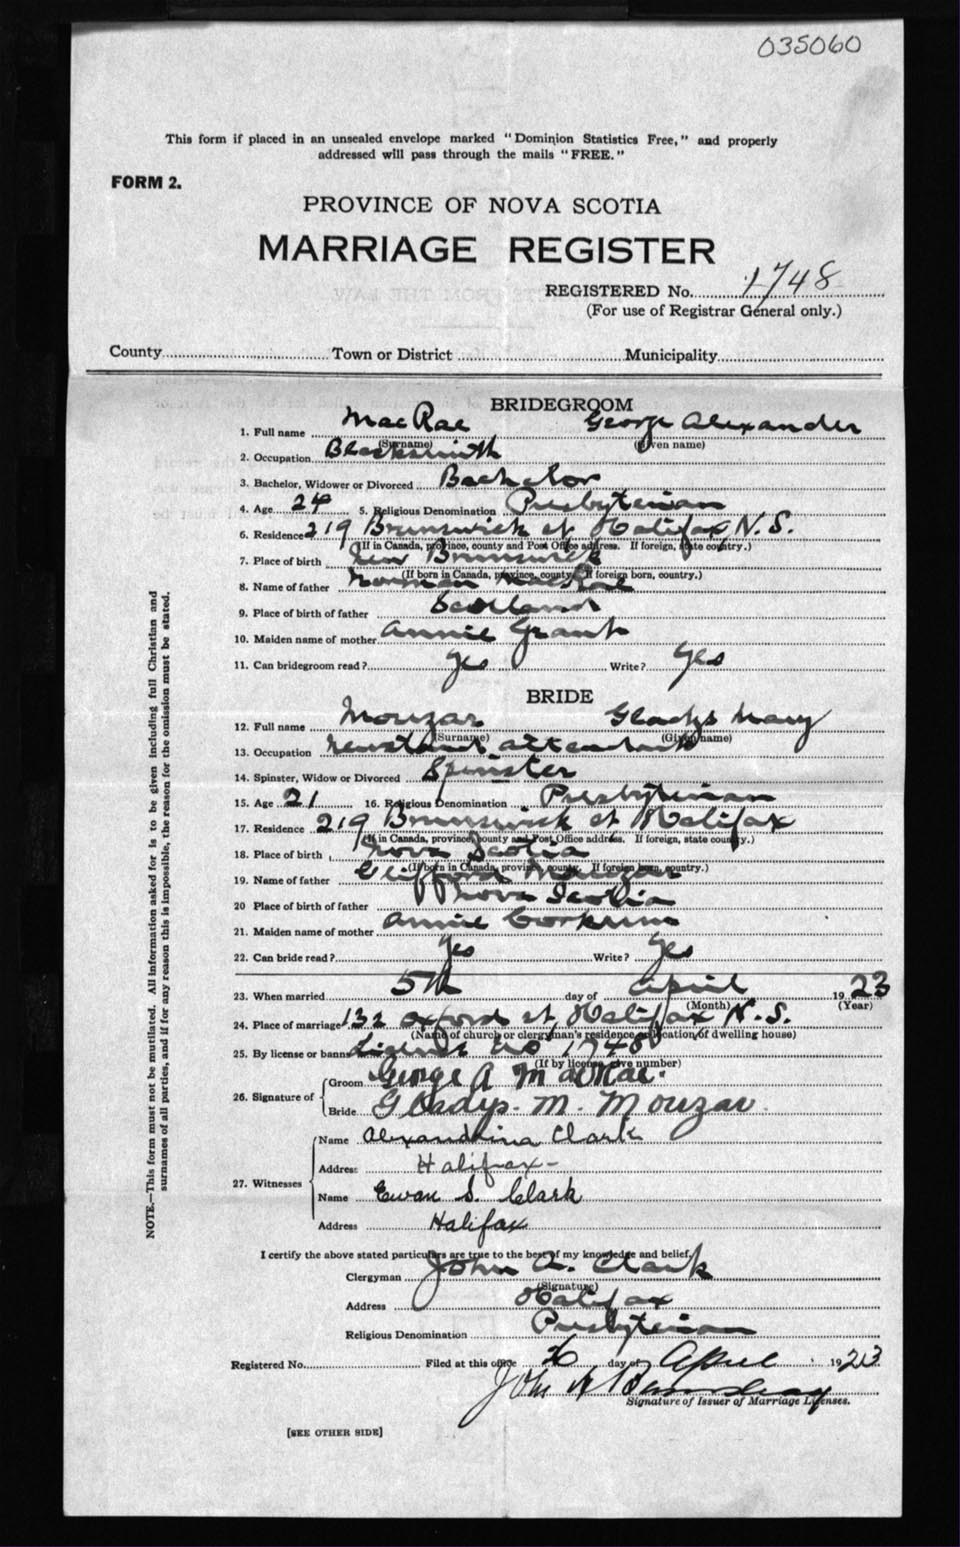 035060
This form if placed in an unsealed envelope marked "Dominion Statistics Free," and properly
addressed will pass through the mails "FREE."
FORM 2.
PROVINCE OF NOVA SCOTIA
MARRIAGE REGISTER
REGISTERED No. 1748
(For use of Registrar General only.)
County Town or District Municipality
BRIDEGROOM
1. Full name MacRae George Alexander
(Surname) (Given name)
2. Occupation Blacksmith
3. Bachelor, Widower or Divorced Bachelor
4. Age 24 5. Religious Denomination Presbyterian
6. Residence 219 Brunswick st Halifax, N.S.
(If in Canada, province, county and Post Office address. If foreign, state country.)
7. Place of birth New Brunswick
(If born in Canada, province, county. If foreign born, country.)
8. Name of father Norman MacRae
9. Place of birth of father Scotland
10. Maiden name of mother Annie Grant
11. Can bridegroom read? yes Write? yes
BRIDE
12. Full name Mouzar Gladys Mary
(Surname) (Given name)
13. Occupation newstand attendant
14. Spinster, Widow or Divorced Spinster
15. Age 21 16. Religious Denomination Presbyterian
17. Residence 219 Brunswick st Halifax
(If in Canada, province, county and Post Office address. If foreign, state country.)
18. Place of birth Nova Scotia
(If born in Canada, province, county. If foreign born, country.)
19. Name of father Clifford Mouzar
20 Place of birth of father Nova Scotia
21. Maiden name of mother Annie Corkum
22. Can bride read? Yes Write? Yes
23. When married 5th day of April 1923
(Month) (Year)
24. Place of marriage 132 Oxford st, Halifax N.S.
(Name of church or clergyman's residence or location of dwelling house)
25. By license or banns License no 1748
(If by license, give number)
26. Signature of Groom George A MacRae.
Bride Gladys. M. Mouzar.
27. Witnesses Name Alexandrina Clark
Address Halifax-
Name Ewan S. Clark
Address Halifax
I certify the above stated particulars are true to the best of my knowledge and belief.
Clergyman John A. Clark
(Signature)
Address Halifax
Religious Denomination Presbyterian
Registered No. Filed at this office 6 day of April 1923
John A
Signature of Issuer of Marriage Licenses.
[SEE OTHER SIDE]
NOTE.—This form must not be mutilated. All information asked for is to be given including full Christian and
surnames of all parties, and if for any reason this is impossible, the reason for the omission must be stated.